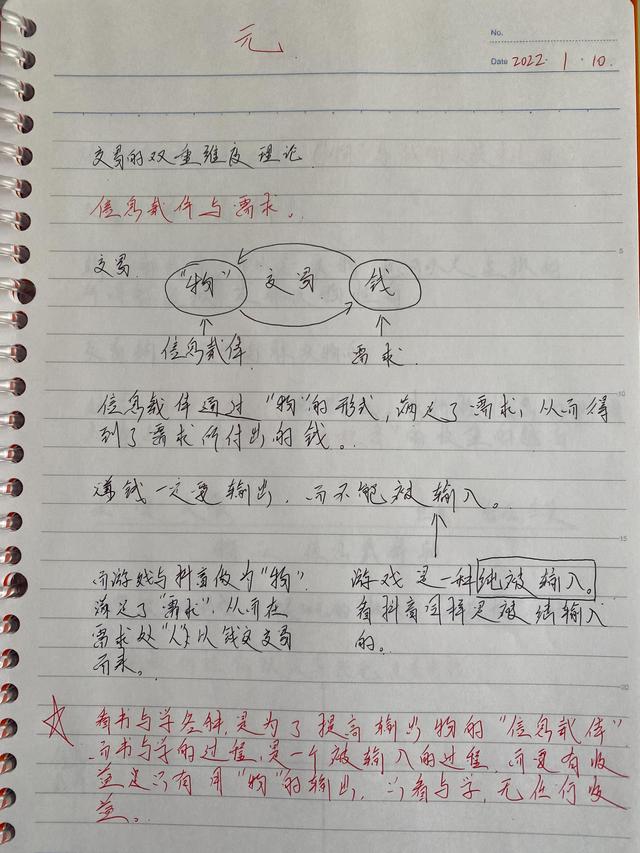 元
No.
Date 2022. 1 . 10.
交易的双重维度理论
信息载体与需求。
交易.
"物" 交易 钱
信息载体 需求.
信息载体通过"物"的形式,满足了需求,从而得
到了需求所付出的钱。
赚钱一定要输出,而不能被输入。
而游戏与抖音做为"物".
满足了"需求",从而在
需求处"人"以钱交交易
而来。
游戏是一种纯被输入。
看抖音同样是被纯输入
的。
看书与学各种,是为了提高输出物的"信息载体"
而书与学的过程,是一个被输入的过程,而要有收
益是只有用"物"的输出,只看与学,无任何收
益。
5
10
15
20